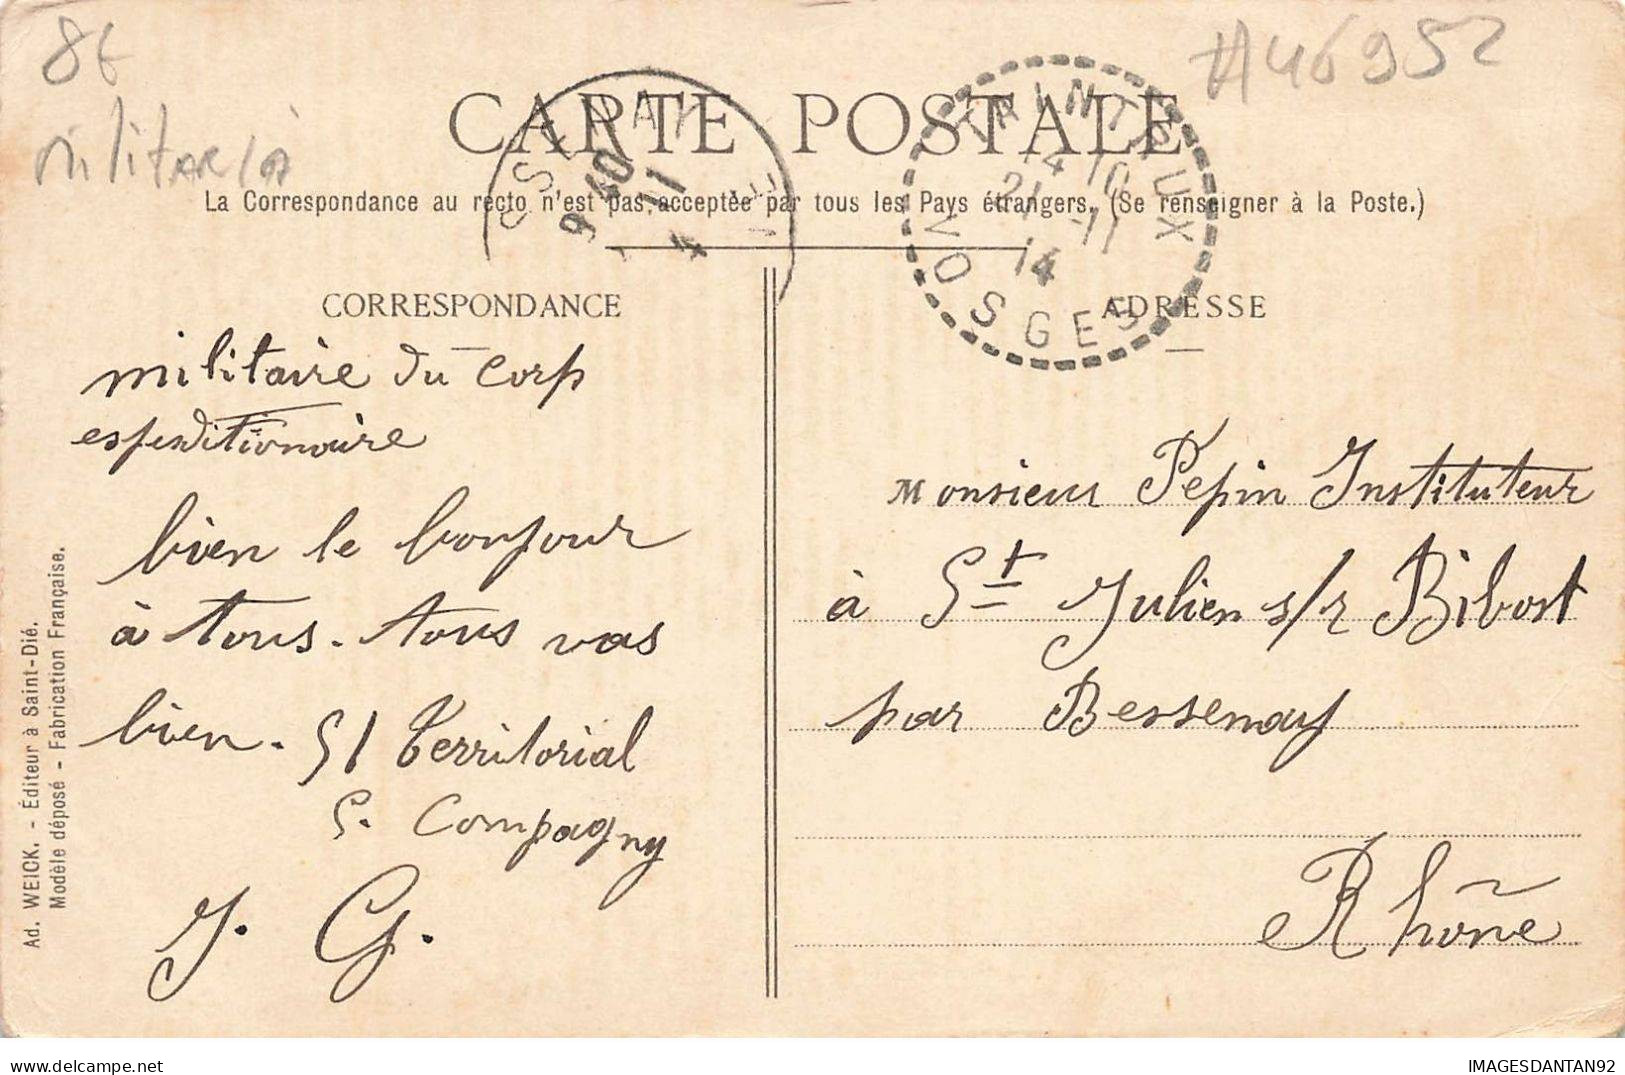 8€
militaria
#46952
CARTE POSTALE
La Correspondance au recto n'est pas acceptée par tous les Pays étrangers. (Se renseigner à la Poste.)
9 40
11
TAINTRUX
14 10
21 -11
14
VOSGES
CORRESPONDANCE
militaire du corp
expeditionaire
bien le bonjour
à tous. tous vas
bien. 51 Territorial
5. Compagny
J. G.
ADRESSE
Monsieur Pepin Instituteur
à St Julien s/r Bibost
par Bessenay
Rhône
Ad. WEICK. - Éditeur à Saint-Dié.
Modèle déposé - Fabrication Française.
IMAGESDANTAN92